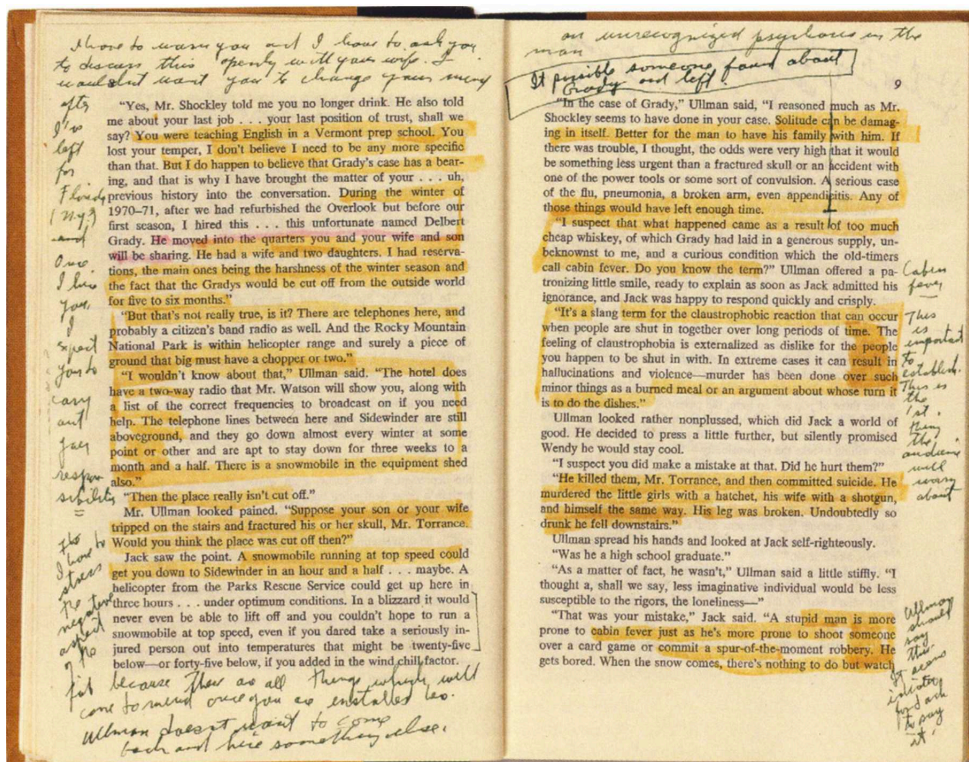 I have to warn you and I have to ask you
to discuss this openly with your wife. I
wouldnt want you to change your mind
after
I've
left
for
Florida
and
Once
I hire
you,
I
expect
you to
carry
out
your
respon
sibility
I have to
stress
the
negative
aspect
of the
job because there are all things which will
come to mind once you are installed
Ullman doesnt want to come
back and hire something else.
"Yes, Mr. Shockley told me you no longer drink. He also told
me about your last job . . . your last position of trust, shall we
say? You were teaching English in a Vermont prep school. You
lost your temper, I don't believe I need to be any more specific
than that. But I do happen to believe that Grady's case has a bear-
ing, and that is why I have brought the matter of your . . . uh,
previous history into the conversation. During the winter of
1970–71, after we had refurbished the Overlook but before our
first season, I hired this . . . this unfortunate named Delbert
Grady. He moved into the quarters you and your wife and son
will be sharing. He had a wife and two daughters. I had reserva-
tions, the main ones being the harshness of the winter season and
the fact that the Gradys would be cut off from the outside world
for five to six months."
"But that's not really true, is it? There are telephones here, and
probably a citizen's band radio as well. And the Rocky Mountain
National Park is within helicopter range and surely a piece of
ground that big must have a chopper or two."
"I wouldn't know about that," Ullman said. "The hotel does
have a two-way radio that Mr. Watson will show you, along with
a list of the correct frequencies to broadcast on if you need
help. The telephone lines between here and Sidewinder are still
aboveground, and they go down almost every winter at some
point or other and are apt to stay down for three weeks to a
month and a half. There is a snowmobile in the equipment shed
also."
"Then the place really isn't cut off."
Mr. Ullman looked pained. "Suppose your son or your wife
tripped on the stairs and fractured his or her skull, Mr. Torrance.
Would you think the place was cut off then?"
Jack saw the point. A snowmobile running at top speed could
get you down to Sidewinder in an hour and a half . . . maybe. A
helicopter from the Parks Rescue Service could get up here in
three hours . . . under optimum conditions. In a blizzard it would
never even be able to lift off and you couldn't hope to run a
snowmobile at top speed, even if you dared take a seriously in-
jured person out into temperatures that might be twenty-five
below—or forty-five below, if you added in the wind chill factor.
an unrecognized psychosis in the
man
It possible someone found about
Grady and left.
9
"In the case of Grady," Ullman said, "I reasoned much as Mr.
Shockley seems to have done in your case. Solitude can be damag-
ing in itself. Better for the man to have his family with him. If
there was trouble, I thought, the odds were very high that it would
be something less urgent than a fractured skull or an accident with
one of the power tools or some sort of convulsion. A serious case
of the flu, pneumonia, a broken arm, even appendicitis. Any of
those things would have left enough time.
"I suspect that what happened came as a result of too much
cheap whiskey, of which Grady had laid in a generous supply, un-
beknownst to me, and a curious condition which the old-timers
call cabin fever. Do you know the term?" Ullman offered a pa-
tronizing little smile, ready to explain as soon as Jack admitted his
ignorance, and Jack was happy to respond quickly and crisply.
"It's a slang term for the claustrophobic reaction that can occur
when people are shut in together over long periods of time. The
feeling of claustrophobia is externalized as dislike for the people
you happen to be shut in with. In extreme cases it can result in
hallucinations and violence—murder has been done over such
minor things as a burned meal or an argument about whose turn it
is to do the dishes."
Ullman looked rather nonplussed, which did Jack a world of
good. He decided to press a little further, but silently promised
Wendy he would stay cool.
"I suspect you did make a mistake at that. Did he hurt them?"
"He killed them, Mr. Torrance, and then committed suicide. He
murdered the little girls with a hatchet, his wife with a shotgun,
and himself the same way. His leg was broken. Undoubtedly so
drunk he fell downstairs."
Ullman spread his hands and looked at Jack self-righteously.
"Was he a high school graduate."
"As a matter of fact, he wasn't," Ullman said a little stiffly. "I
thought a, shall we say, less imaginative individual would be less
susceptible to the rigors, the loneliness—"
"That was your mistake," Jack said. "A stupid man is more
prone to cabin fever just as he's more prone to shoot someone
over a card game or commit a spur-of-the-moment robbery. He
gets bored. When the snow comes, there's nothing to do but watch
Cabin
fever
This
is
important
to
establish.
This is
the
1st.
thing
the
audience
will
worry
about
Ullman
should
say
this
It seems
for Jack
to say
it!